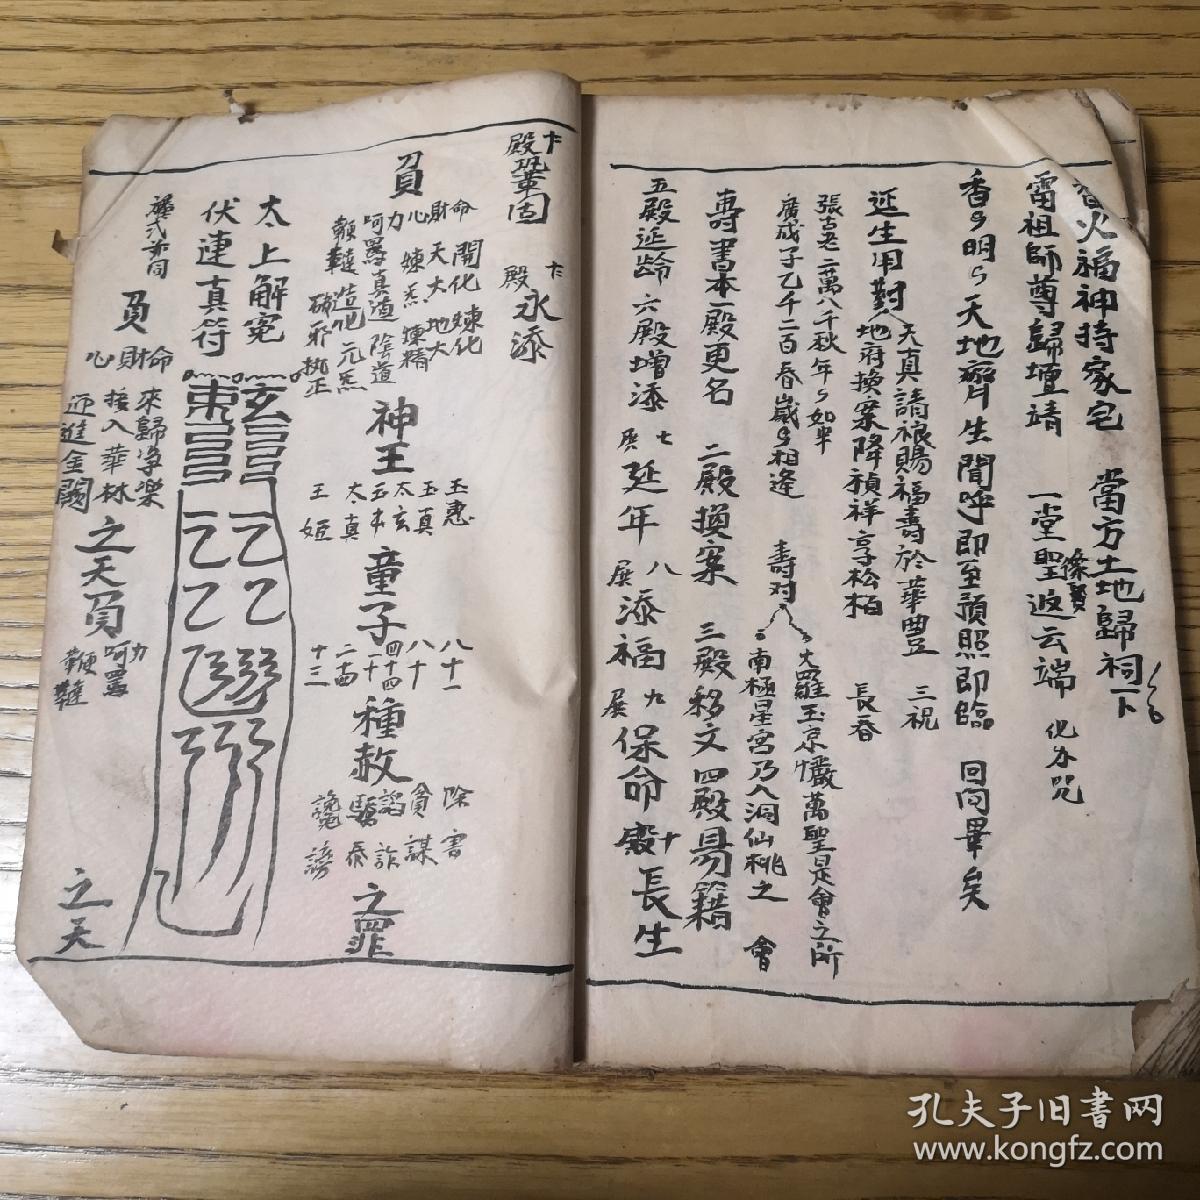 香火福神持家宅 當方土地歸祠下
雷祖師尊歸壇靖 一堂聖像返云端 化办咒
香香明明天地齊生聞呼即至預照即臨 回向畢矣
延生用對 天真請祿賜福壽於華豊 三祝
地府換案降禎祥享松柏 長春
張古老二萬八千秋年年如半
廣成子乙千二百春歲歲相逢
壽对 大羅玉京懺萬聖是會之所
南極星宮乃人洞仙桃之會
壽書本一殿更名 二殿換案 三殿移文 四殿易籍
五殿延龄 六殿增添 七展延年 八展添福 九展保命 十殿長生
殿鞏固 殿永添
員 命財心力呵罵鞭韃
開化煉化
天大地大
煉炁煉精
真道陰道
造化元炁
破邪執正
神王
玉惠
玉真
太玄
五本
太真
王姬
童子
八十一
八十
四十四
二十四
十三
種赦
除害
貪謀
諂詐
驕泰
讒謗
之罪
太上解冤
伏連真符
雜式亦同
員 命財心
來歸净樂
接入華林
迎進金闕
之天員
力呵罵
鞭韃
之天
孔夫子旧書网
www.kongfz.com